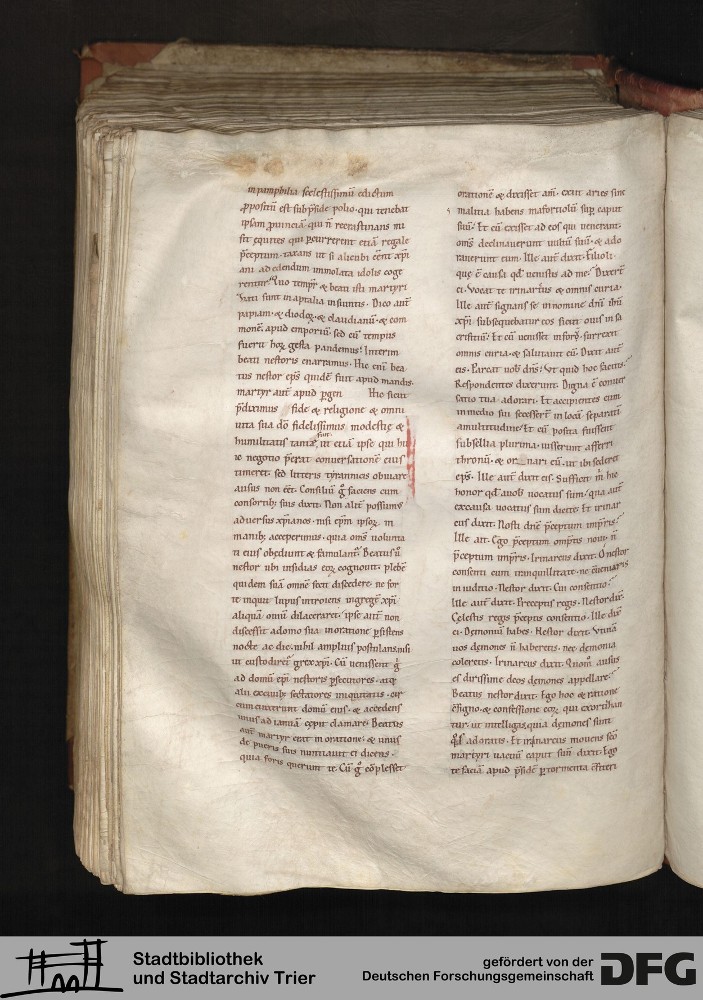 in pamphilia scelestissimū edictum
ꝓpositū est sub p̄side polio · qui tenebat
ipsam ꝓuinciā qui n̄ recrastinans mi
sit equites qui ꝑcurrerent etiā regale
p̄ceptum · taxans ut si alicubi eēnt xp̄i
ani ad edendum immolata idolis coge
rentur
uati sunt in aptalia insuntis · Dico aut̄
papiam · & diodoꝝ · & claudianū · & con
monē · apud emporiū · sed eū tempus
fuerit hoꝝ gesta pandemus · Interim
beati nestoris enarramus · Hic eni bea
tus nestor ep̄s quidē fuit apud mandis
martyr aut̄ apud ꝑgen Hic sicut
p̄diximus fide & religione & omni
uita sua dō fidelissimus modestię &
humilitatis tantę fuit ut etiā ipse qui hui
io negotio p̄erat conuersationē eius
timeret · sed litteris tyrannicis obuiare
ausus non eēt · Consiliū g̊ faciens cum
consortib; suis dixit · Non alit̄ possum᷒
aduersus xp̄ianos · nisi ep̄m ipsoꝝ in
manib; acceperimus · quia om̄s uolunta
ti eius obędiunt & famulant᷑ · Beatus ū
nestor ubi insidias eoꝝ cognouit · plebē
quidem suā omnē fecit discedere · ne for
te inquit lupus introiens in gregē xp̄i
aliquā ouiū dilaceraret · ipse aut̄ non
discessit a domo sua in oratione ꝑsistens
nocte ac die · nihil amplius postulans nisi
ut custodiret᷑ grex xp̄i · Cū uenissent g̊
ad domū ep̄i nestoris ꝑsecutores · atq;
alii execrab; sectatores iniquitatis · cir
cumcinxerunt domū eius · & accedens
unus ad ianuā cępit clamare · Beatus
aut̄ martyr erat in oratione · & unus
de pueris suis nuntiauit ei dicens ·
quia foris querunt te · Cū g̊ cōplesset
orationē & dixisset am̄ · exiit aries sine
malitia habens mafortiolū suꝑ caput
suū · Et cū exisset ad eos qui uenerant ·
om̄s declinauerunt uultū suū · & ado
rauerunt eum · Ille aut̄ dixit · Filioli ·
quę ē causa qđ uenistis ad me · Dixerē
ei · Vocat te irinarcus & omnis curia ·
Ille aut̄ signans se in nomine dn̄i ihū
xp̄i subsequebatur eos sicut ouis in sa
crificiū · Et cū uenisset in forū · surrexit
omnis curia · & salutauit eū · Dixit aut̄
eis · Parcat uob dn̄s · Vt quid hoc facitis ·
Respondentes dixerunt · Digna ē conuer
satio tua adorari · Et accipientes eum
in medio sui secesserē in locū separatū
a multitudine · Et cū posita fuissent
subsellia plurima · iusserunt afferri
thronū · & or nari eū · ut ibi sederet
ep̄s · Ille aut̄ dixit eis · Sufficit m̄ hic
honor qđ a uob uocatus sum · qua aut̄
ex causa uocatus sum dicite · Et irinar
cus dixit · Nosti dn̄e p̄ceptum imꝑris ·
Ille ait · Ego p̄ceptum omp̄tis noui · n̄
p̄ceptum imꝑris · Irinarcus dixit · O nestor
consenti cum tranquillitate · ne
in iuditio · Nestor dixit · Cui consentio ·
Ille aut̄ dixit · Preceptis regis · Nestor dix̄ ·
Cęlestis regis p̄ceptis consentio · Ille dix̄
ei · Demoniū habes · Nestor dixit · Vtinā
uos demones n̄ haberetis · nec demonia
coleretis · Irinarcus dixit · Quom̊ ausus
es dirissime deos demones appellare ·
Beatus nestor dixit · Ego hoc & ratione
& confessione eoꝝ qui exorizan
tur · ut intelligas · quia demones sunt
adoratis · Et irinarcus mouens seū
martyri uacuū caput suū dixit · Ego
te faciā apud p̄sidē ꝑ tormenta cfiteri
Stadtbibliothek
und Stadtarchiv Trier
gefördert von der
Deutschen Forschungsgemeinschaft
DFG